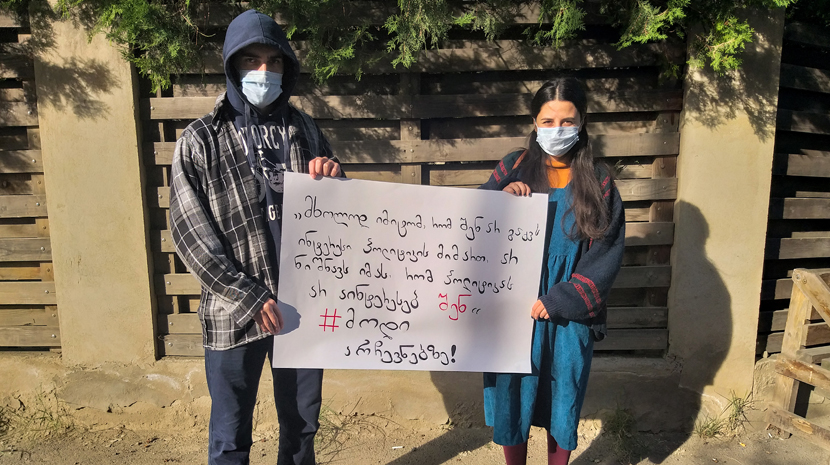 „მხოლოდ იმიტომ, რომ შენ არ გაქვს
ინტერესი პოლიტიკის მიმართ, არ
ნიშნავს იმას, რომ პოლიტიკას
არ აინტერესებ შენ“
#მოდი
არჩევნებზე!